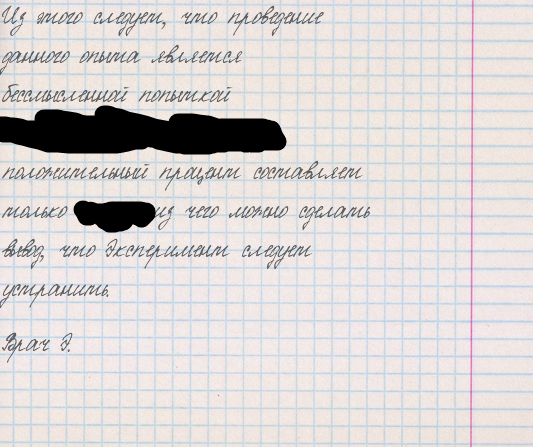 Из этого следует, что проведение
данного опыта является
бессмысленной попыткой
положительный процент составляет
только из чего можно сделать
вывод, что Эксперимент следует
устранить.
Врач Э.